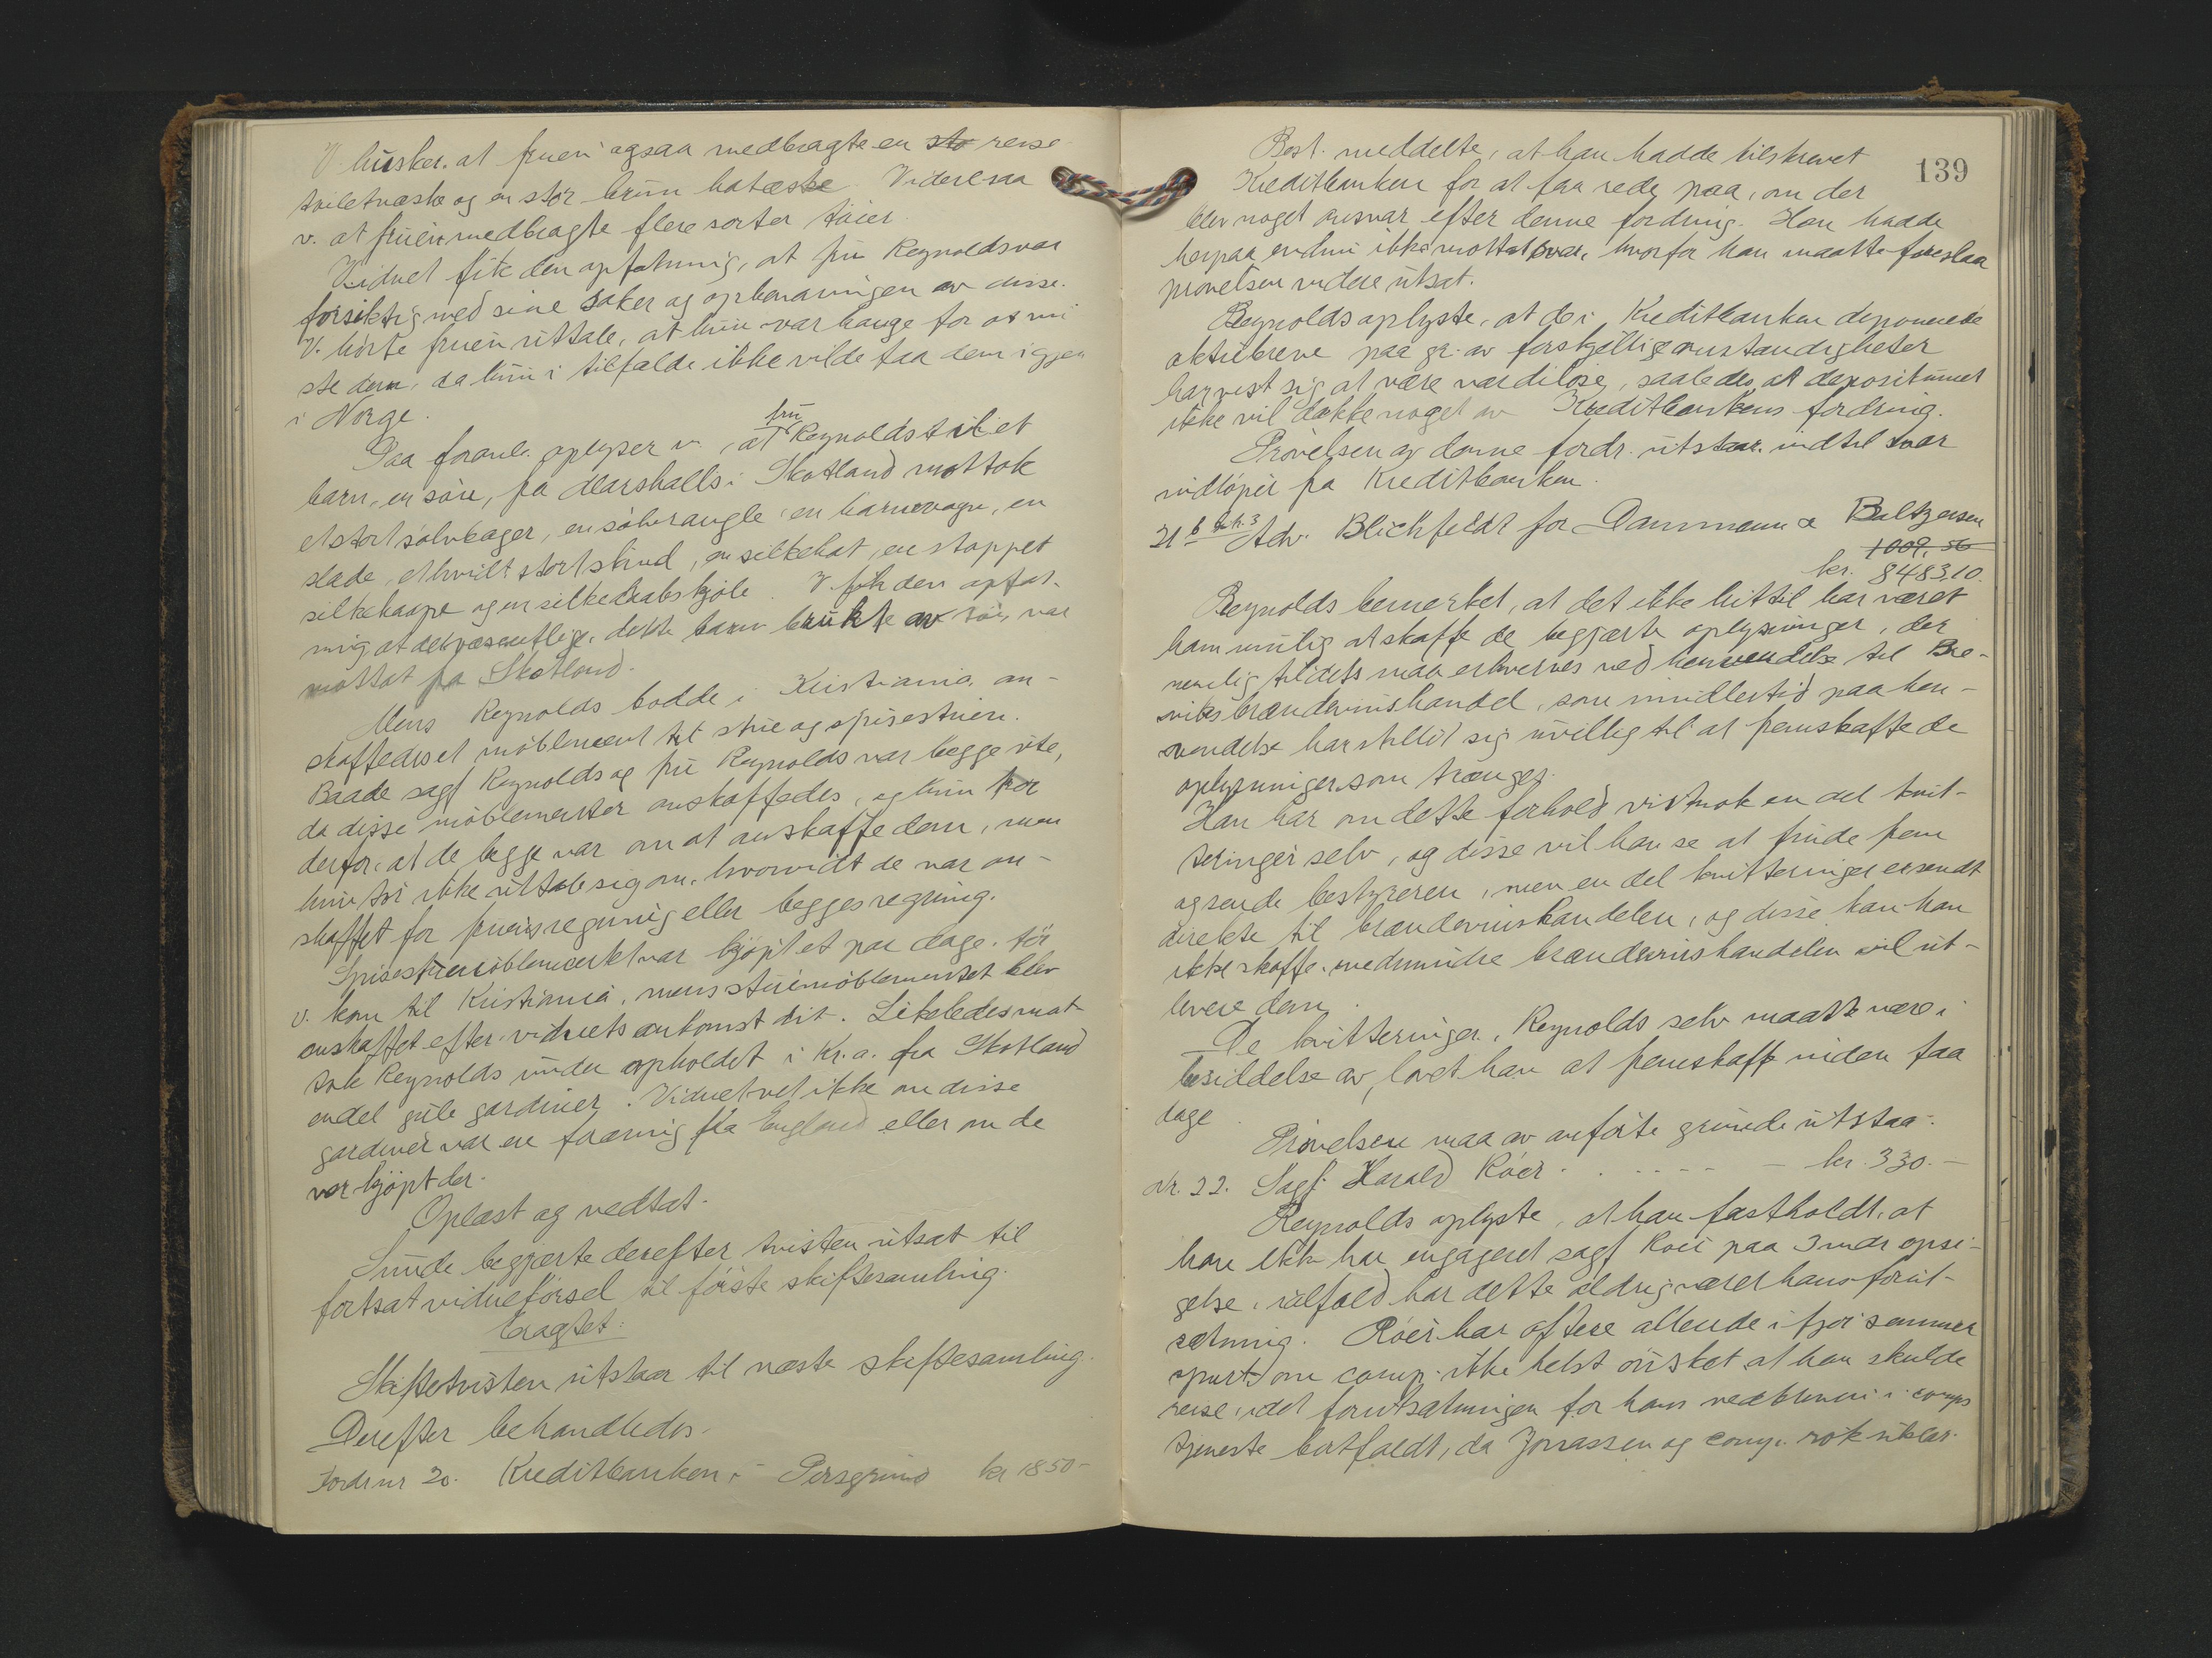 V. husker. at fruen ogsaa medbragte en sto reise
toiletvæske og en stor brun hatæske. Videre saa
v. at fruen medbragte flere sorter töier.
Vidnet fik den opfatning, at fru Reynolds var
forsiktig med sine saker og opbevaringen av disse.
V. hörte fruen uttale, at hun var bange for at mi
ste dem, da hun i tilfælde ikke vilde faa dem igjen
i Norge.
Paa foranl. oplyser v., at fru Reynolds til et
barn, en sön, fra Marshalls i Skotland mottok
et stort sölvbæger, en sölvrangle, en barnevogn, en
slæde, et hvidt stort skind, en silkehat, en stoppet
silkekaape og en silkedaabskjole. V. fik den opfat-
ning, at det væsentlige, dette barn brukte av töi, var
mottat fra Skotland.
Mens Reynolds bodde i Kristiania an-
skaffedes et möblement til stue og spisestuen.
Baade sagf Reynolds og fru Reynolds var begge ute,
da disse möblementer anskaffedes, og hun tror
derfor, at de begge var om at anskaffe dem, men
hun tör ikke uttale sig om, hvorvidt de var an-
skaffet for fruens regning eller begges regning.
Spisestuemöblementet var kjöpt et par dage för
v. kom til Kristiania, mens stuemöblementet blev
anskaffet efter vidnets ankomst dit. Likeledes mot
tok Reynolds under opholdet i Kr.a. fra Skotland
endel gule gardiner. Vidnet vet ikke om disse
gardiner var en foræring fra England eller om de
var kjöpt der.
Oplæst og vedtat.
Sunde begjærte derefter tvisten utsat til
fortsat vidneförsel til förste skiftesamling.
Eragtet:
Skiftetvisten utstaar til næste skiftesamling.
Derefter behandledes.
Fordr nr 20. Kreditbanken i Porsgrund kr 1850-
139
Best. meddelte, at han hadde tilskrevet
Kreditbanken for at faa rede paa, om der
blev noget ansvar efter denne fordring. Han hadde
herpaa endnu ikke mottat svar, hvorfor han maatte foreslaa
prövelsen videre utsat.
Reynolds oplyste, at de i Kreditbanken deponerede
aktiebreve paa gr. av forskjellige omstændigheter
har vist sig at være værdilöse, saaledes at depositumet
ikke vil dække noget av Kreditbankens fordring.
Prövelsen av denne fordr. utstaar indtil svar
indlöper fra Kreditbanken.
21 b Adv. Blichfeldt for Dannmann & Baltzersen
1009,56
kr. 8483,10.
Reynolds bemerket, at det ikke hittil har været
ham mulig at skaffe de begjærte oplysninger, der
nemlig tildels maa erhverves ved henvendelse til Bre-
viks brændevinshandel, som imidlertid paa hen-
vendelse har stillet sig uvillig til at fremskaffe de
oplysninger som trænges.
Han har om dette forhold vistnok en del kvit-
teringer selv, og disse vil han se at finde frem
og sende bestyreren, men en del kvitteringer er sendt
direkte til brændevinshandelen, og disse kan han
ikke skaffe, medmindre brændevinshandelen vil ut-
levere dem.
De kvitteringer, Reynolds selv maatte være i
besiddelse av, lovet han at fremskaffe inden faa
dage.
Prövelsen maa av anförte grunde utstaa.
Nr. 22. Sagf. Harald Röer . . - - - - - kr. 330.-
Reynolds oplyste, at han fastholdt, at
han ikke har engageret sagf Röer paa 3 mdr opsi-
gelse, ialfald har dette aldrig været hans forut-
sætning. Röer har oftere allerede i fjor sommer
spurt om comp. ikke helst önsket at han skulde
reise, idet forutsætningen for hans vedbliven i comps
tjeneste bortfaldt, da Jonassen og comp. rök uklar.